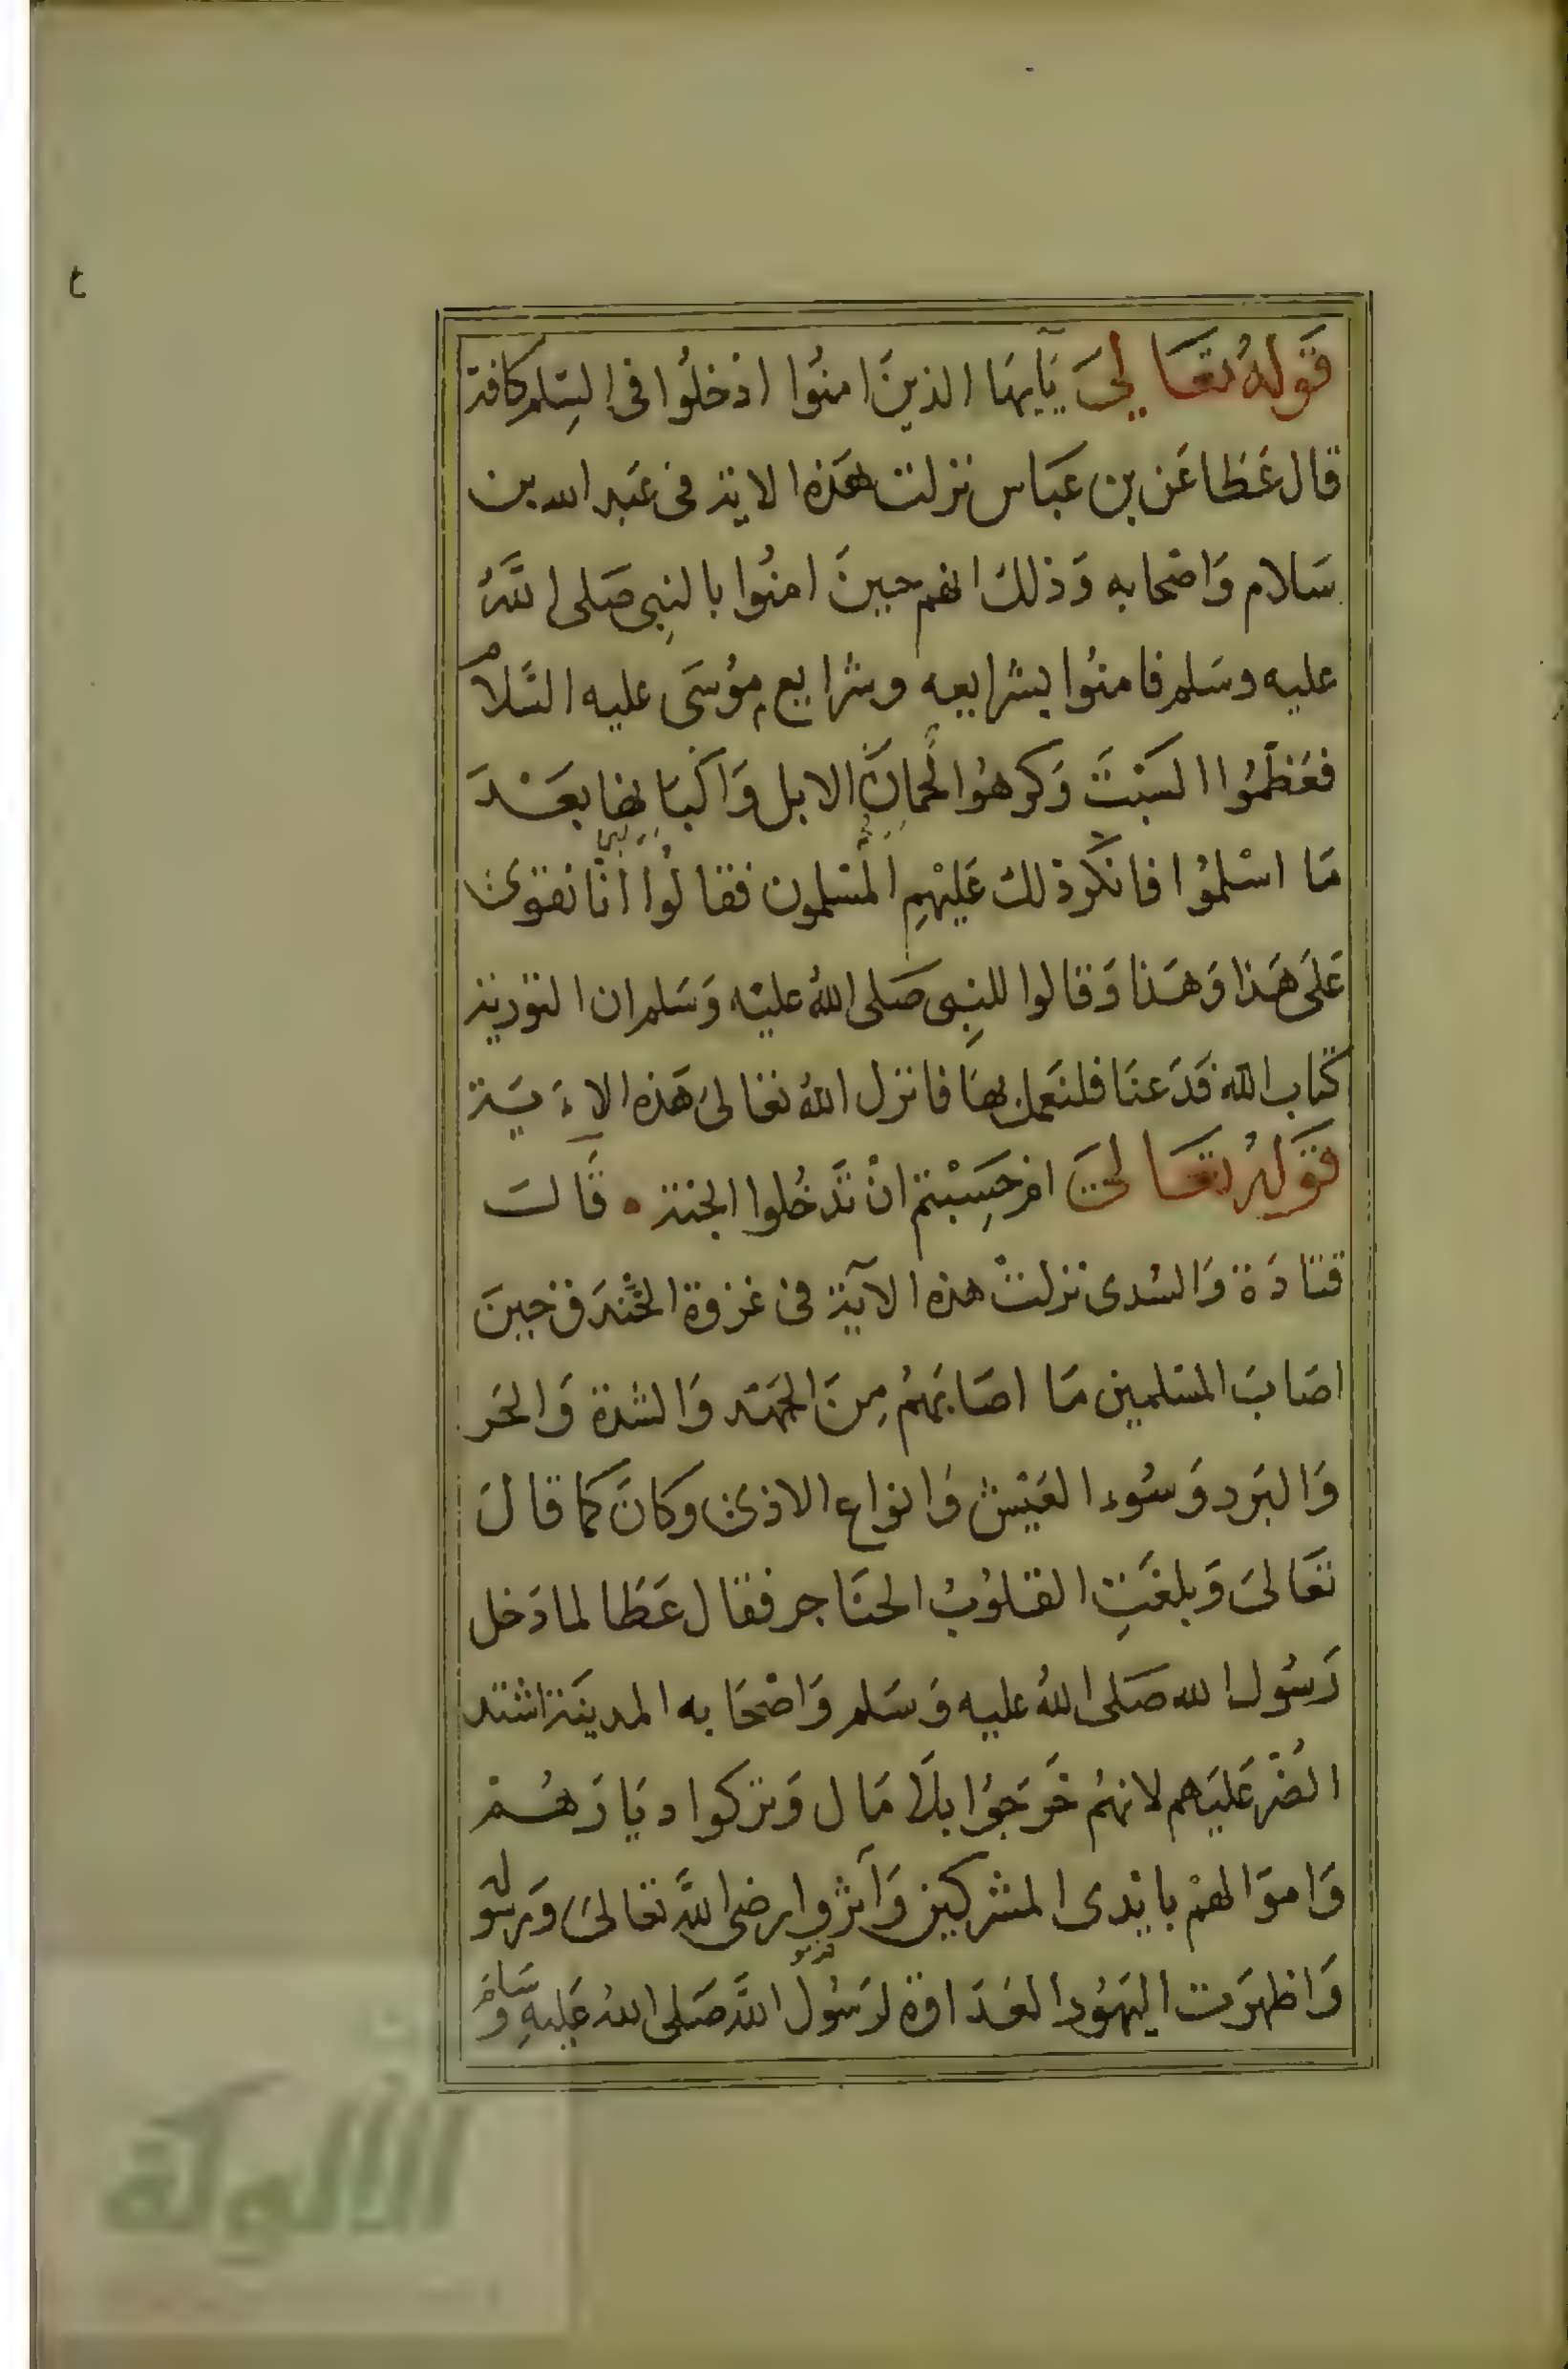 قَوْلهُ تعَالىَ يَآيهَا الذينَ امنُوا ادْخلُوا فى السِّلم كافة
قال عَطا عَن بن عَباس نزلت هَذه الاية فى عَبد الله بن
سَلام وَاصْحابه وَذلك انهم حينَ امنُوا بالنبِى صَلى اللَّهُ
عليه وسَلم فامنُوا بشرايعه وشرايع مُوسَى عليه السَّلام
فعَظمُوا السَبْتَ وَكرهوُا لُحمانَ الابل وَالبَانِهَا بعَدَ
مَا اسْلمُوا فانكَر ذلك عَليْهِم المسْلمون فقالوُا انَّا نقوىَ
عَلىَ هَذا وَهَذا وَقالوا للنبِى صَلى اللهُ عليْه وَسَلم ان التورية
كتاب الله فَدَعنَا فلنعَمل بهَا فانزل اللهُ تعَالىَ هَذه الاءَيَة
قَوْلهُ تعَالىَ امْ حَسِبْتم انْ تَدخُلوا الجنة ٥ قَالَ
قتادَة وَالسُدى نزلتْ هذه الآية فى غزوة الخَنْدَق حينَ
اصَابَ المسْلمين مَا اصَابَهمُ مِنَ الجَهْد وَالشدة وَالحَر
وَالبَرد وَسُوء العَيْش وَانواع الاذىَ وكانَ كما قالَ
تعَالىَ وَبلغَتِ القلوُبُ الحنَاجر فقال عَطَا لما دَخل
رَسُول الله صَلى اللهُ عليه وَسَلم وَاصْحَابه المدينَة اشتد
الضُرّ عَليَهم لانهمُ خَرجَوُا بلاَ مَال وَتركوا ديَارَهُمْ
وَاموَالهمْ بايْدى المشركين وَآثروا رضى اللَّه تعَالىَ وَرسُوله
وَاظهَرت اليَهُود العَدَاوَة لرَسُول اللَّه صَلى اللهُ عَليهِ وَسَلم
الألوكة